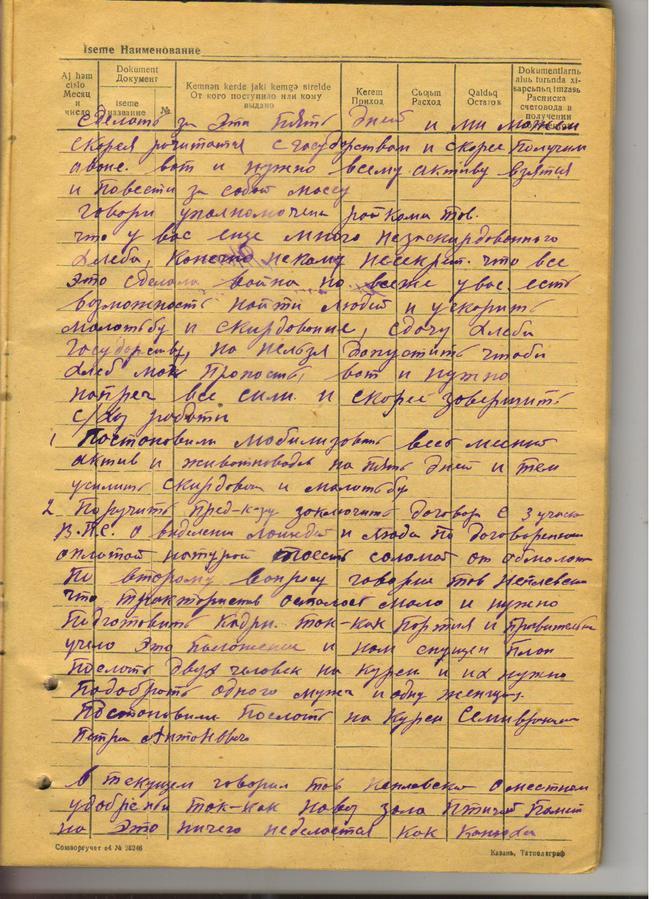 Iseme Наименование
Aj həm cislo Месяц и число
Dokument Документ
iseme название
№
Kemnən kerde jaki kemgə birelde От кого поступило или кому выдано
Kerem Приход
Cьqьm Расход
Qaldьq Остаток
Dokumentlarnь alu turьnda xisapcьnьꞑ imzasь Расписка счетовода в получении
сделать за эти пять дней и ми можем
скорея рочитатся с государством и скорее получим
авонс. вот и нужно всему активу взятся
и повести за собой массу
говори уполномочена райкома тов.
что у вас еще много незаскирдованного
хлеба, конечно некому несекрет. что все
это сделала война но всеже у вас есть
возможность найти людей и ускорить
молотьбу и скирдование, сдачу хлеба
государству, но нельзя допустить чтоби
хлеб мог пропасть, вот и нужно
напреч все сили и скорее завершить
с/хоз работи
1 Постановили мобилизовать весь
актив и животноводов на пять дней и тем
усилить скирдован и молотьбу
2 Поручить пред-к-зу заключить договор с 3 участ
о виделени и люди по договоренно
оплатой натурой тоесть соломой от обмолота
По второму вопросу говорил тов
что трактористов осталось мало и нужно
подготовить кадри. так-как портия и правительс
учло это положение и нам спущен план
послать двух человек на курси и их нужно
подобрать одного мужч и одну женщин.
Постановили послать на курси
Петра Антонович
В текущем говорил тов о местном
удобрени так-как навоз зола птичий помет
на это ничего неделается как
Союзоргучет
Казань, Татполиграф